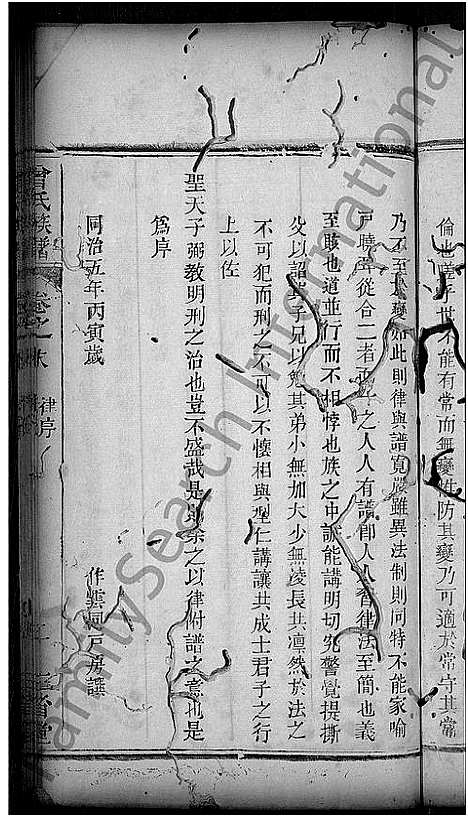 倫也蓋 世 不能有常而無變 防其變乃可適於常守其常
乃不至 變如此則律與譜寬嚴雖異法制則同特不能家喻
戶曉 從合二者 之人人有譜卽人人 律法至簡也義
至賅也道並行而不相悖也族之中誠能講明切究警覺提撕
父以詔其子兄以勉其弟小無加大少無凌長共凜然於法之
不可犯而刑之不可以不懷相與型仁講讓共成士君子之行
上以佐
聖天子弼教明刑之治也豈不盛哉是則余之以律附譜之意也是
爲序
同治五年丙寅歲
作雲 戶房譔
曾氏族譜
卷之末
律序
堂
FamilySearch International